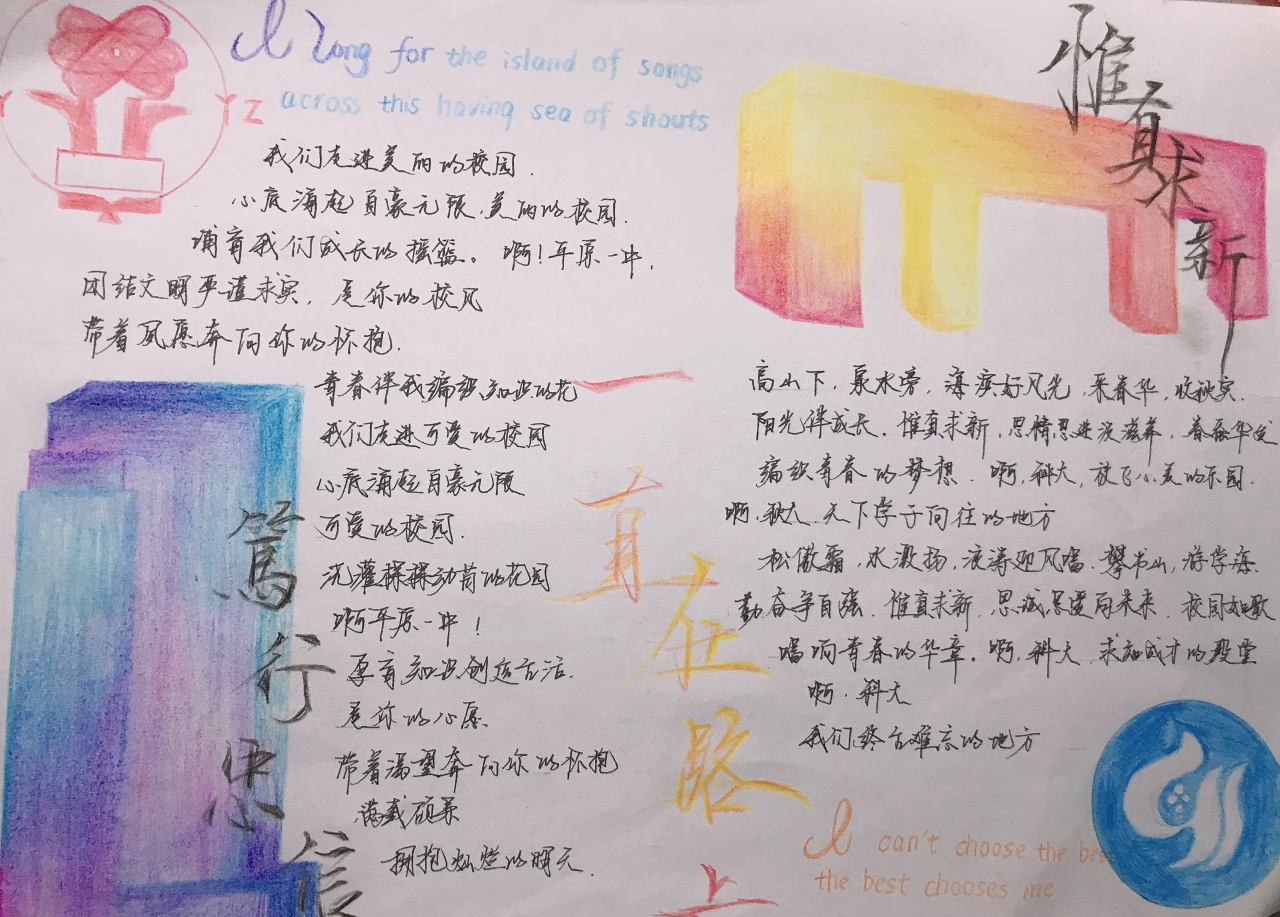 YZ
I Long for the island of songs
across this having sea of shouts
我们走进美丽的校园.
心底涌起自豪无限.美丽的校园.
哺育我们成长的摇篮。啊!平原一中,
团结文明严谨求实,是你的校风
带着夙愿奔向你的怀抱.
青春伴我编织知识的花
我们走进可爱的校园
心底涌起自豪无限
可爱的校园.
浇灌棵棵幼苗的花园
啊平原一中!
厚育知识创造生活.
是你的心愿.
带着渴望奔向你的怀抱
满载硕果
拥抱灿烂的明天.
笃行忠信
一直在路上
惟真求新
高山下,泉水旁,海滨好风光,采春华,收秋实.
阳光伴成长.惟真求新,思情思进沃滋养,春蚕华发
编织青春的梦想.啊,科大,放飞心灵的乐园.
啊,科大,天下学子向往的地方
松傲霜,水激扬,浪涛迎风唱.攀书山,游学海.
勤奋争自强.惟真求新,思诚思进向未来.校园如歌
唱响青春的华章。啊,科大,求知成才的殿堂
啊,科大
我们终生难忘的地方
I can't choose the best
the best chooses me